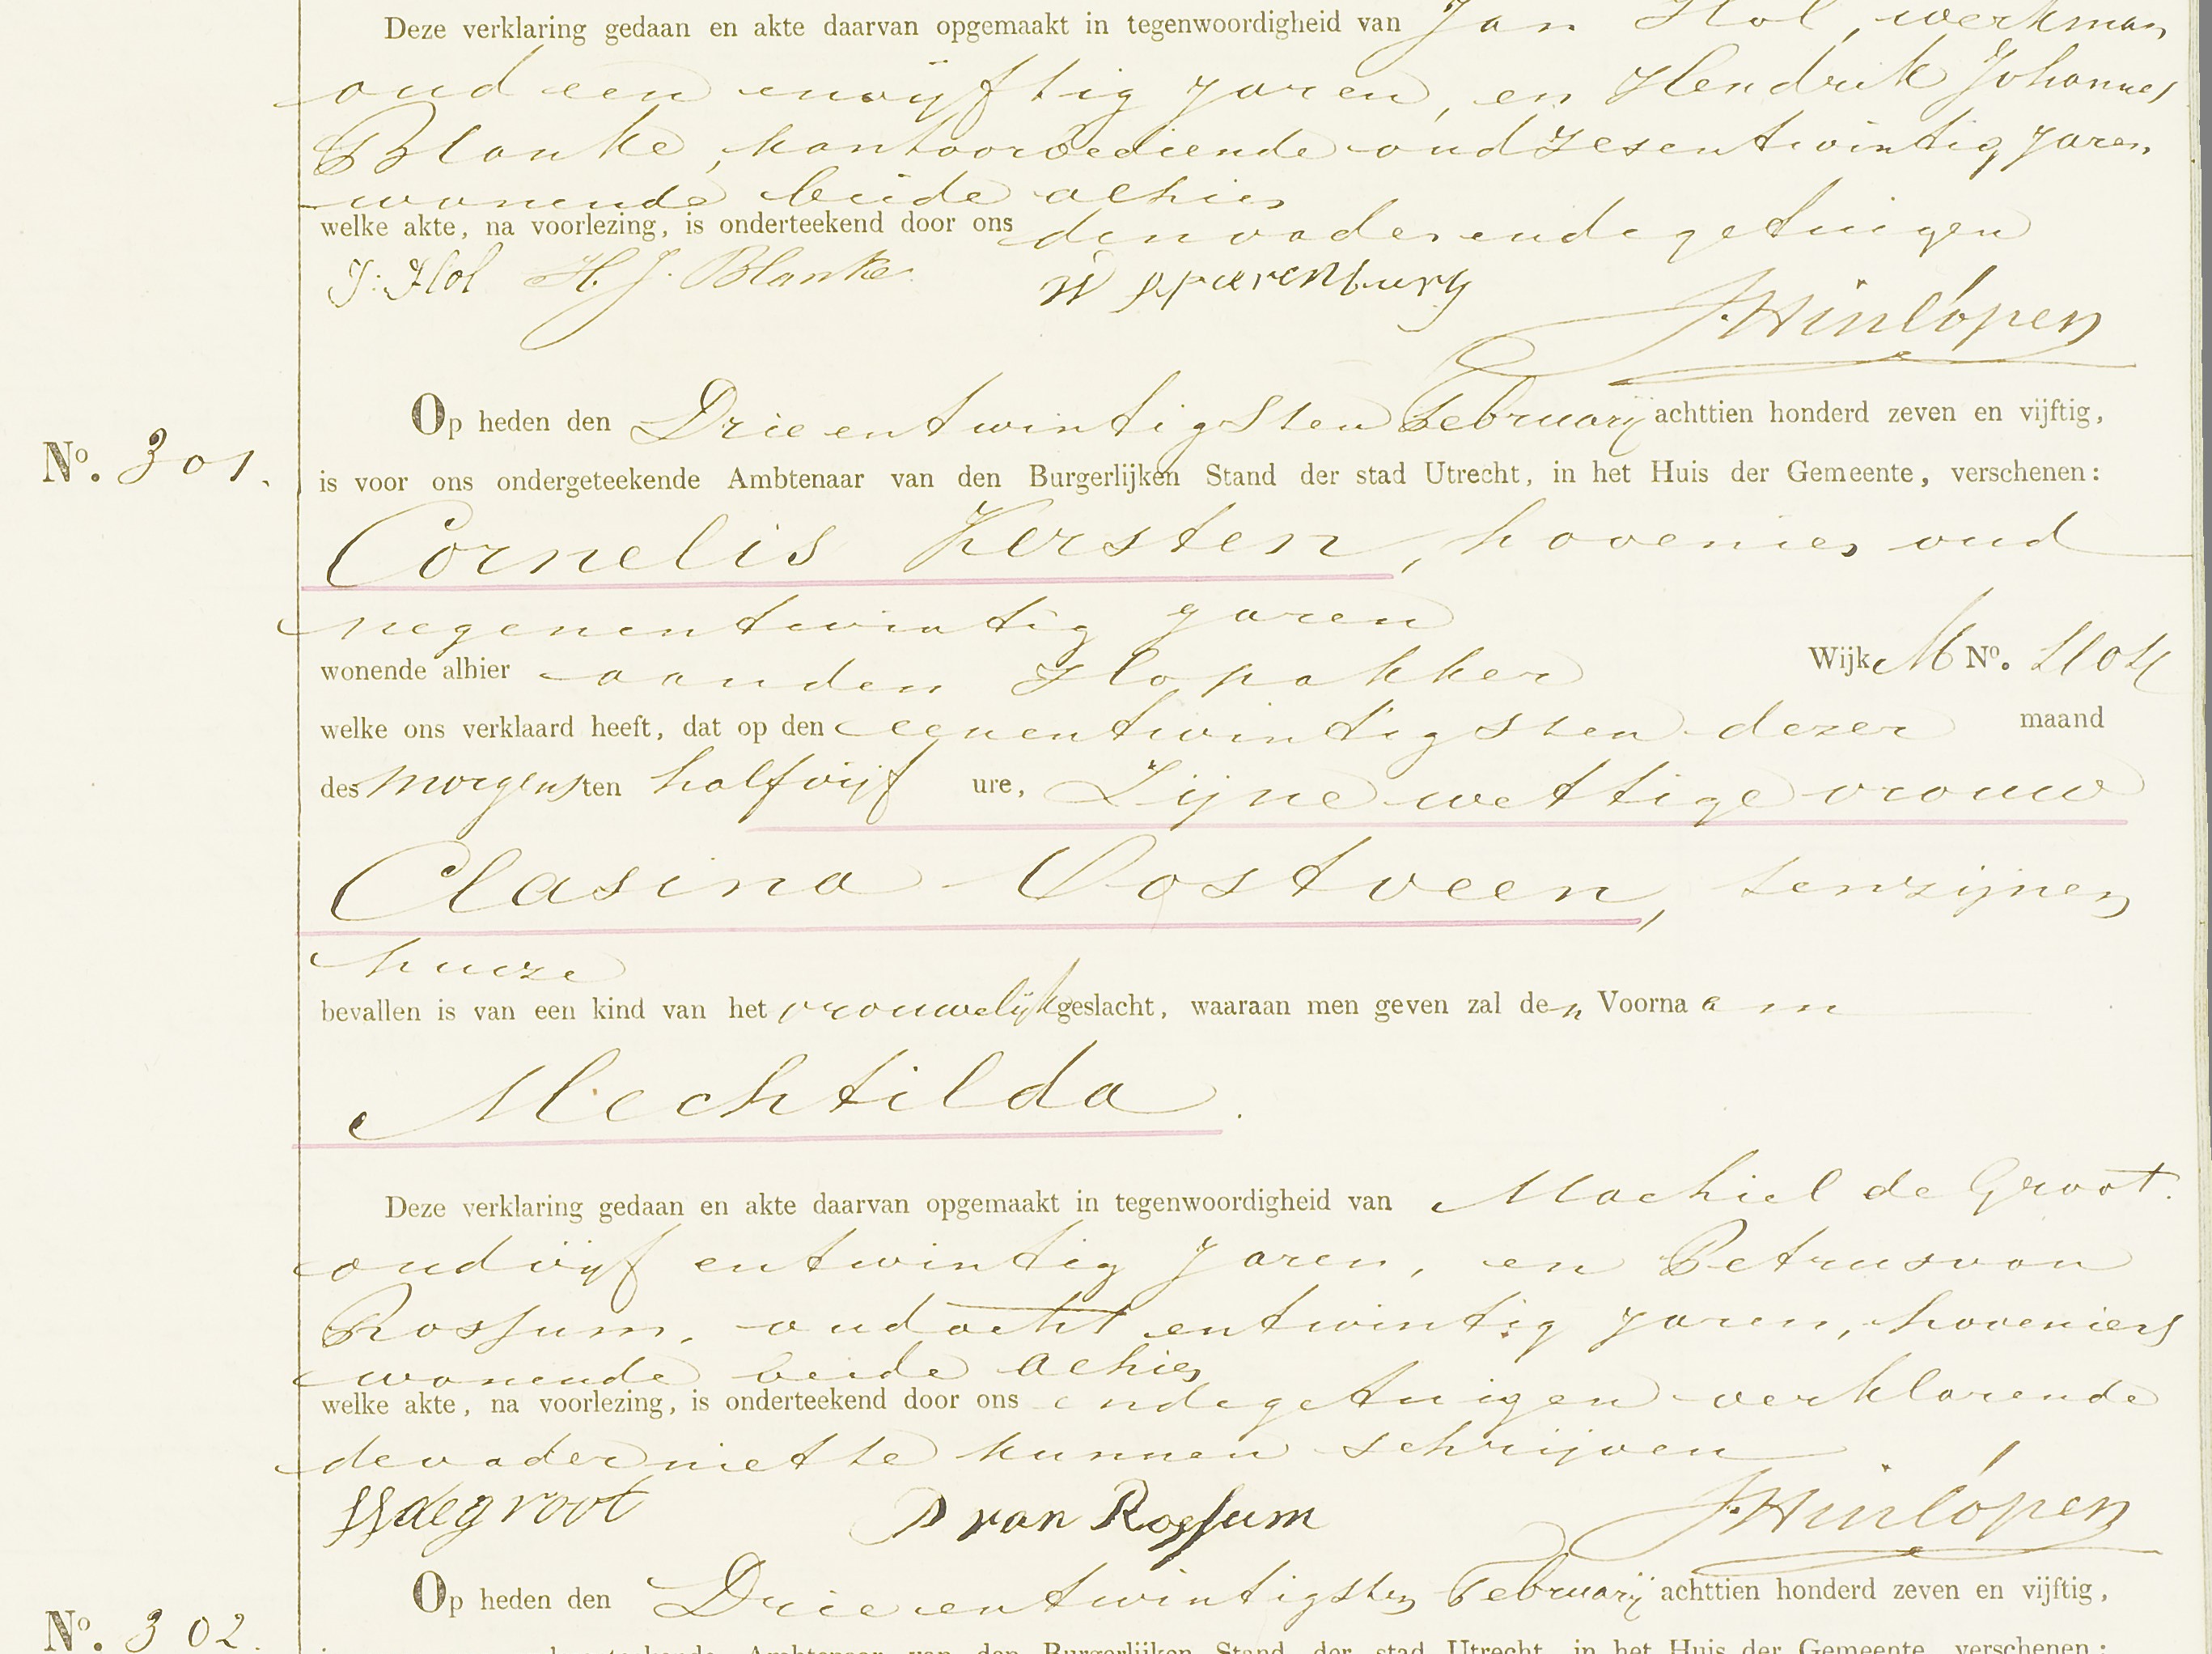 Deze verklaring gedaan en akte daarvan opgemaakt in tegenwoordigheid van Jan Hol, werkman
oud een envijftig jaren, en Hendrik Johannes
Blanke, kantoorbediende oud zesentwintig jaren
wonende beide alhier
welke akte, na voorlezing, is onderteekend door ons den vader ende getuigen
J: Hol H. J. Blanke W sparenburg
J. Hinlópen
Op heden den Drieentwintigsten Februarij achttien honderd zeven en vijftig,
No. 301.
is voor ons ondergeteekende Ambtenaar van den Burgerlijken Stand der stad Utrecht, in het Huis der Gemeente, verschenen:
Cornelis Kersten, hovenier oud
negenentwintig jaren
wonende alhier aan den Hopakker Wijk M No.
welke ons verklaard heeft, dat op den eenentwintigsten dezer maand
des morgens ten half vijf ure, Zijne wettige vrouw
Clasina Oostveen, ten zijnen
huize
bevallen is van een kind van het vrouwelijk geslacht, waaraan men geven zal den Voornaam
Mechtilda.
Deze verklaring gedaan en akte daarvan opgemaakt in tegenwoordigheid van Machiel de Groot.
oud vijf entwintig jaren, en Petrus van
Rossum, oud acht entwintig jaren, hoveniers
wonende beide alhier
welke akte, na voorlezing, is onderteekend door ons ende getuigen verklarende
de vader niet te kunnen schrijven
de groot P van Rossum J. Hinlópen
Op heden den Drieentwintigsten Februarij achttien honderd zeven en vijftig,
No. 302.
Ambtenaar van den Burgerlijken Stand der stad Utrecht, in het Huis der Gemeente, verschenen: